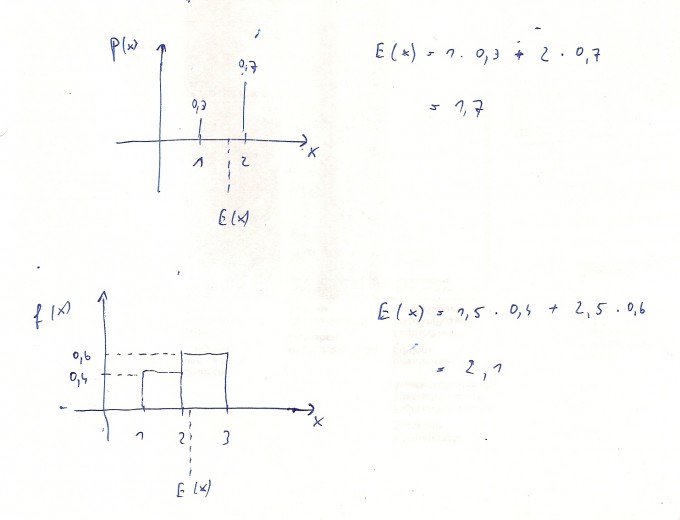 P(x)
0,7
0,3
1 2 x
E(x)
E(x) = 1 · 0,3 + 2 · 0,7
= 1,7
f(x)
0,6
0,4
1 2 3 x
E(x)
E(x) = 1,5 · 0,4 + 2,5 · 0,6
= 2,1